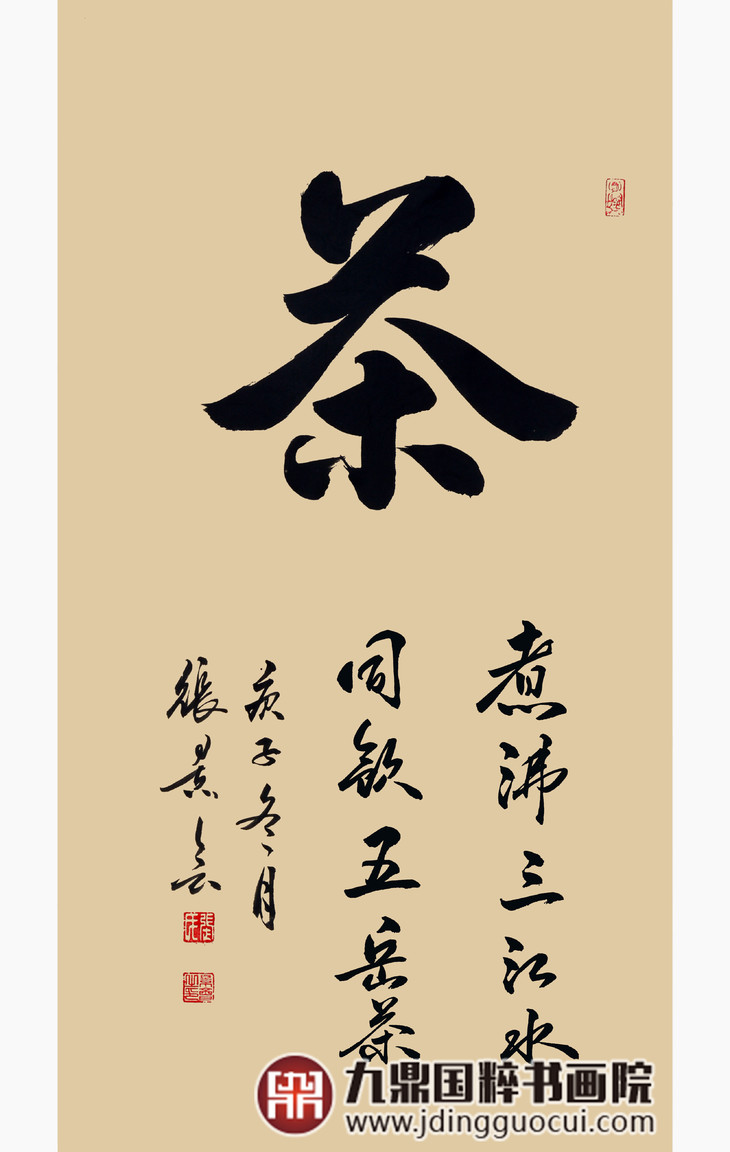 茶
煮沸三江水
同飲五岳茶
庚子冬月
張景会
九鼎国粹书画院
www.jdingguocui.com